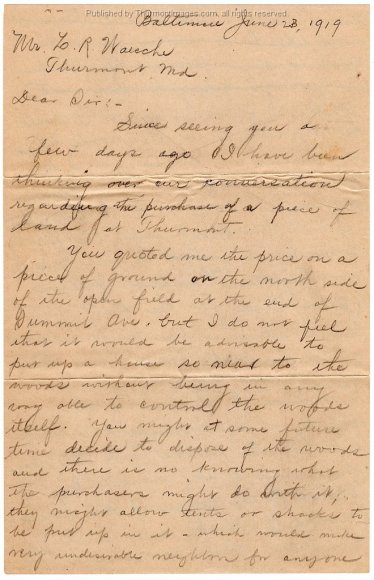 Published by Thurmontimages.com, all rights reserved.
Baltimore June 23, 1919
Mr. L. R. Waesche
Thurmont Md.
Dear Sir:-
Since seeing you a
few days ago I have been
thinking over our conversation
regarding the purchase of a piece of
land at Thurmont.
You quoted me the price on a
piece of ground on the north side
of the open field at the end of
Summit Ave. but I do not feel
that it would be advisable to
put up a house so near to the
woods without being in any
way able to control the woods
itself. You might at some future
time decide to dispose of the woods
and there is no knowing what
the purchasers might do with it;
they might allow tents or shacks to
be put up in it - which would make
very undesirable neighbors for anyone